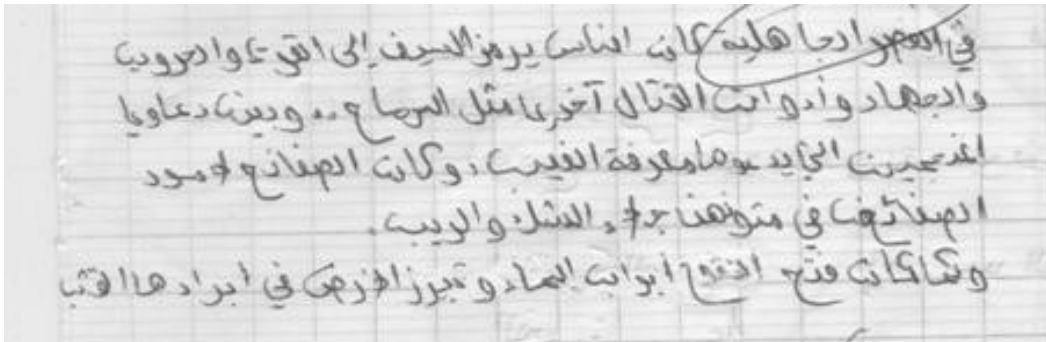 في العصر الجاهلية كان الناس يرمز السيف إلى القوة والحروب
والجهاد وأدوات القتال آخرى مثل الرماح .. وبينت دعاويا
المنجمين التي يدعوها معرفة الغيب، وكان الصفائح سود
الصفائح في متونهن جلاء الشك والريب.
فتح الفتوح أبواب السماء وتبرز الأرض في